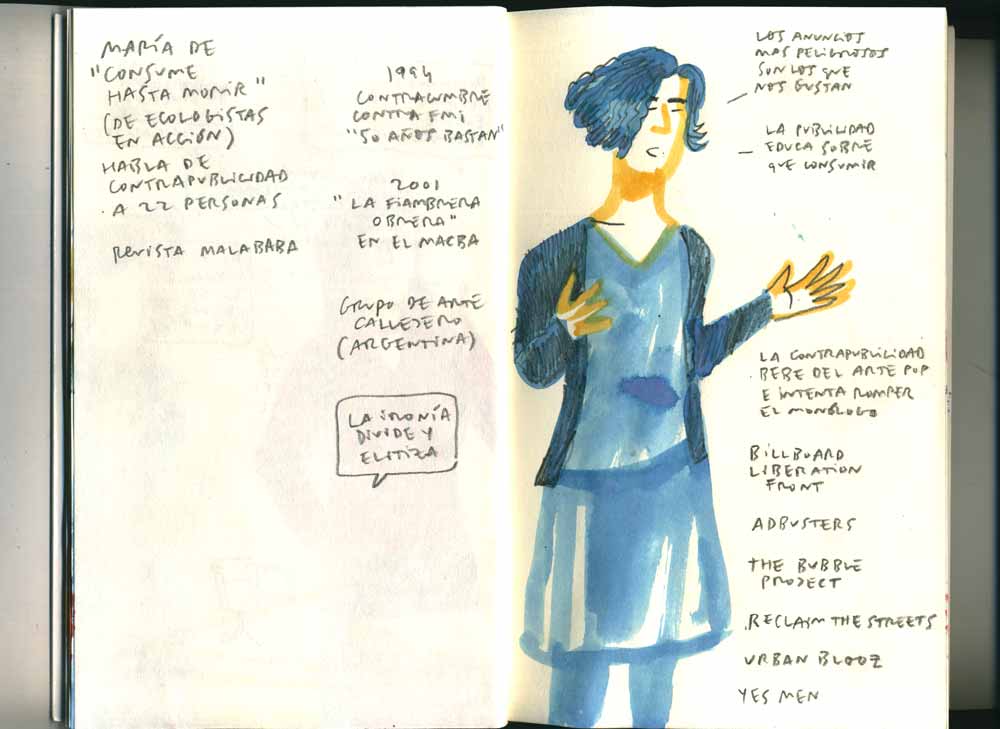 MARÍA DE
"CONSUME
HASTA MORIR"
(DE ECOLOGISTAS
EN ACCIÓN)
HABLA DE
CONTRAPUBLICIDAD
A 22 PERSONAS
REVISTA MALABABA
1994
CONTRACUMBRE
CONTRA FMI
"50 AÑOS BASTAN"
2001
"LA FIAMBRERA
OBRERA"
EN EL MACBA
GRUPO DE ARTE
CALLEJERO
(ARGENTINA)
LA IRONÍA
DIVIDE Y
ELITIZA
LOS ANUNCIOS
MAS PELIGROSOS
SON LOS QUE
NOS GUSTAN
LA PUBLICIDAD
EDUCA SOBRE
QUE CONSUMIR
LA CONTRAPUBLICIDAD
BEBE DEL ARTE POP
E INTENTA ROMPER
EL MONÓLOGO
BILLBOARD
LIBERATION
FRONT
ADBUSTERS
THE BUBBLE
PROJECT
RECLAIM THE STREETS
URBAN BLOOZ
YES MEN